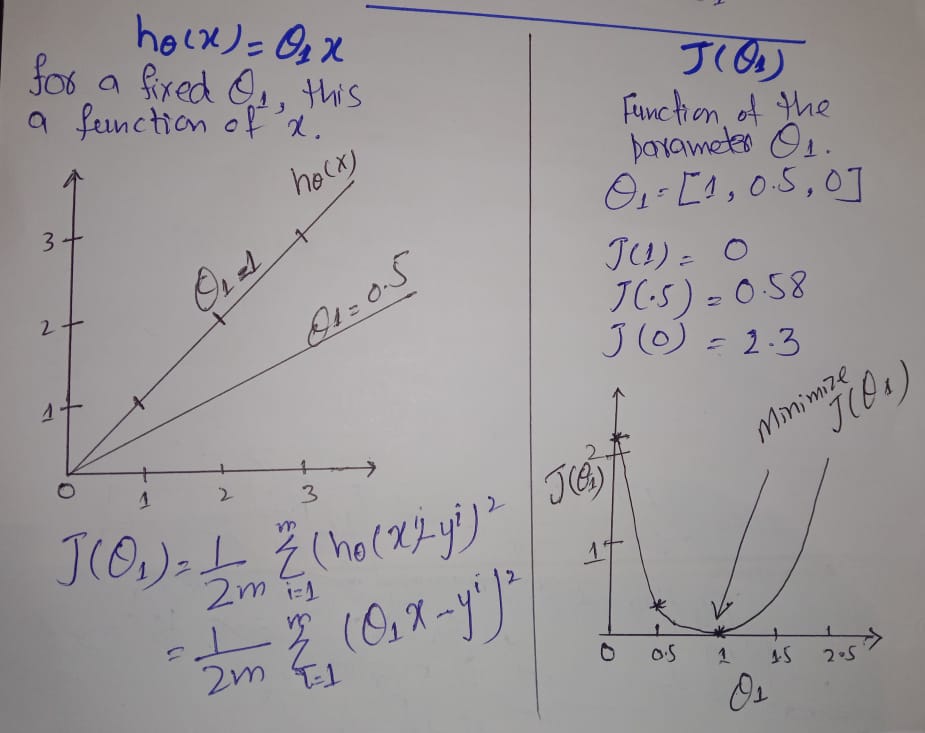 hθ(x) = θ₁x
for a fixed θ₁, this
a function of x.
hθ(x)
θ₁=1
θ₁=0.5
3
2
1
0 1 2 3
J(θ₁) = 1/2m Σ i=1 m (hθ(xⁱ)-yⁱ)²
= 1/2m Σ i=1 m (θ₁x - yⁱ)²
J(θ₁)
Function of the
parameter θ₁.
θ₁=[1, 0.5, 0]
J(1) = 0
J(.5) = 0.58
J(0) = 2.3
Minimize
J(θ₁)
J(θ₁)
2
1
0 0.5 1 1.5 2.5
θ₁